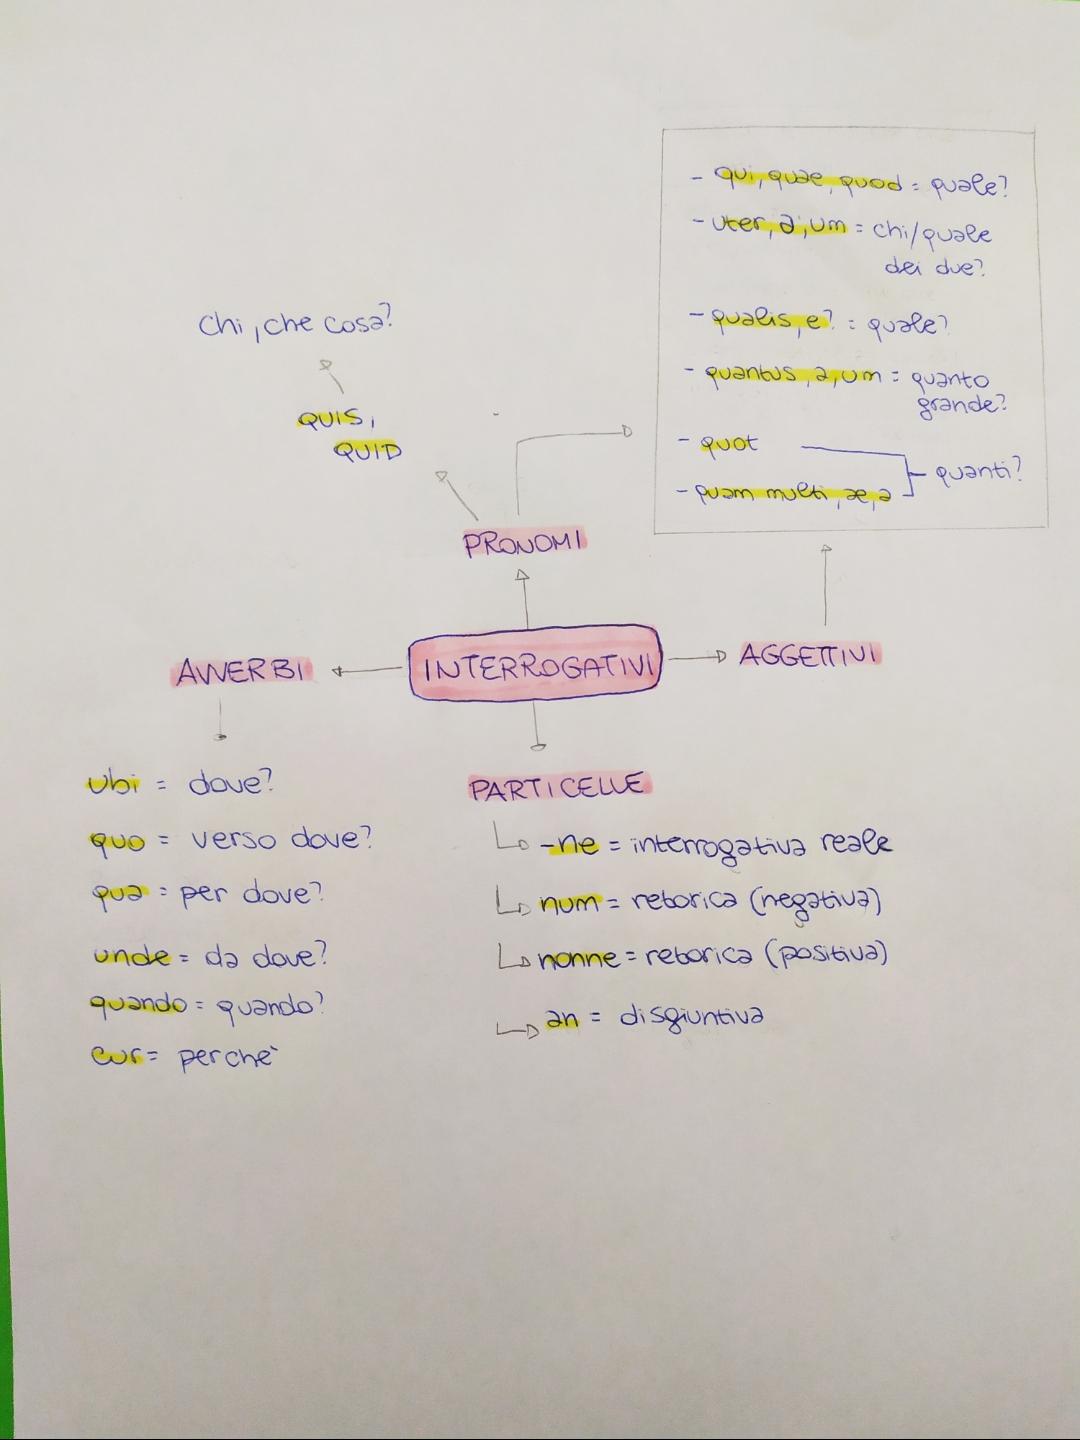 - qui, quae, quod = quale?
- uter, a, um = chi/quale
dei due?
- qualis, e? = quale?
- quantus, a, um = quanto
grande?
- quot
- quam multi, ae, a
quanti?
chi, che cosa?
QUIS,
QUID
PRONOMI
AVVERBI
INTERROGATIVI
AGGETTIVI
ubi = dove?
quo = verso dove?
qua = per dove?
unde = da dove?
quando = quando?
cur = perchè
PARTICELLE
-ne = interrogativa reale
num = retorica (negativa)
nonne = retorica (positiva)
an = disgiuntiva